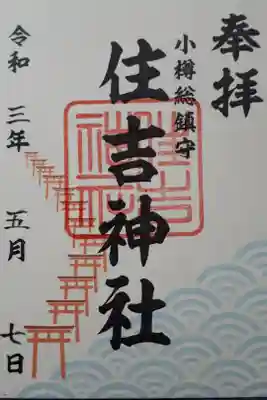 奉拝
小樽総鎮守
住吉神社
住吉神社
令和三年五月七日